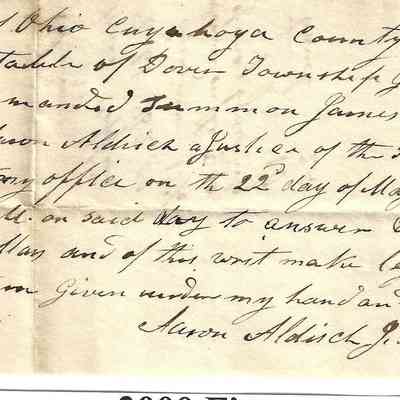 Ohio Cuyahoga County
of Dover Township
manded Summon James
Aaron Aldrich a Justice of the
my office on the 22d day of May
M. on said day to answer
and of this writ make
Given under my hand and
Aaron Aldrich J.